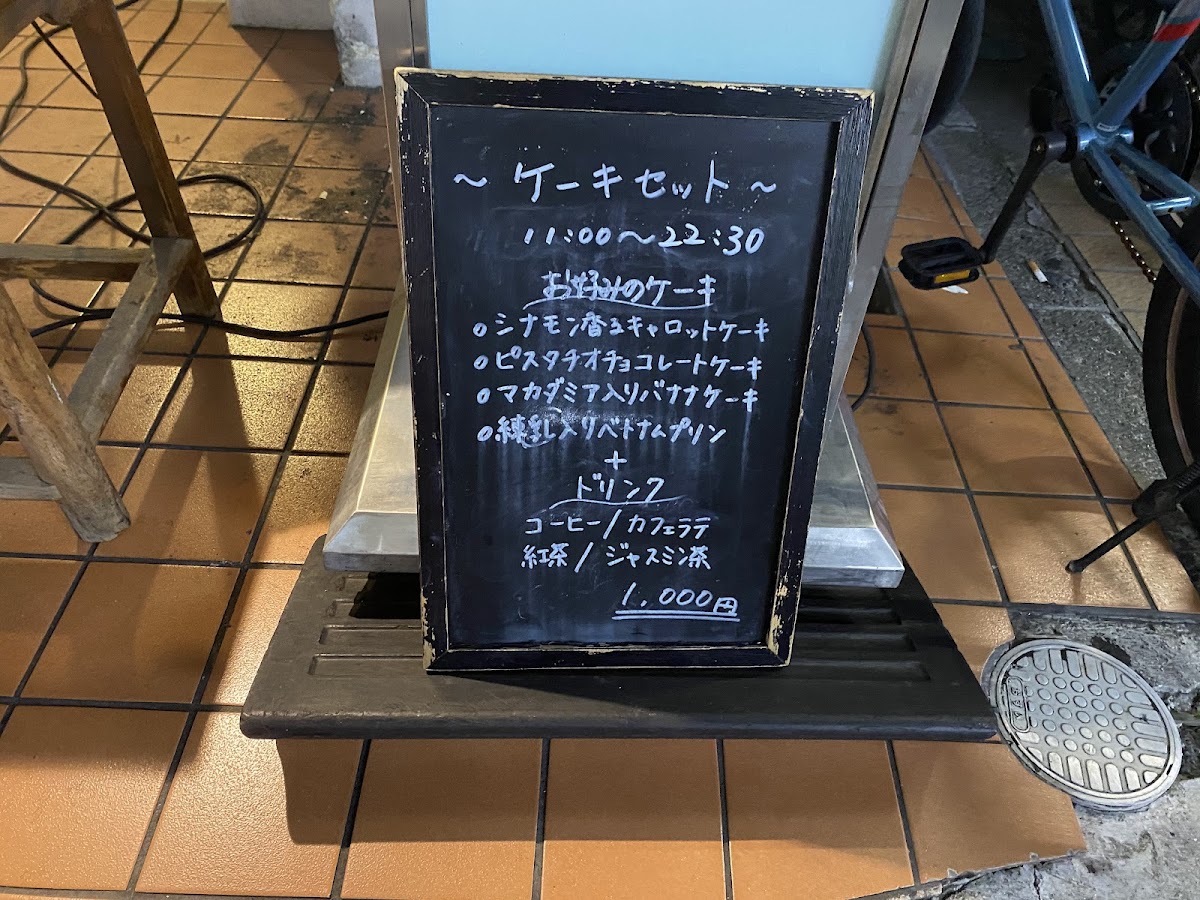 ～ ケーキセット ～
11:00～22:30
お好みのケーキ
○シナモン香るキャロットケーキ
○ピスタチオチョコレートケーキ
○マカダミア入りバナナケーキ
○練乳入りベトナムプリン
+
ドリンク
コーヒー/カフェラテ
紅茶/ジャスミン茶
1,000円